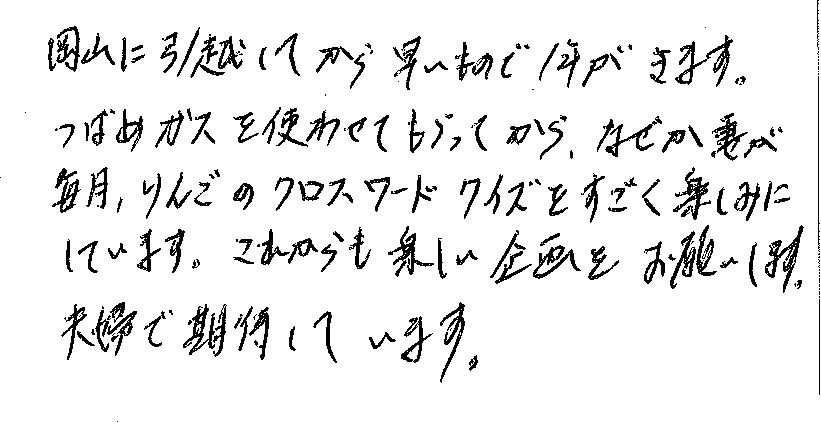 岡山に引越してから早いもので1年がきます。
つばめガスを使わせてもらってから、なぜか妻が
毎月、りんごのクロスワードクイズをすごく楽しみに
しています。これからも楽しい企画をお願いします。
夫婦で期待しています。